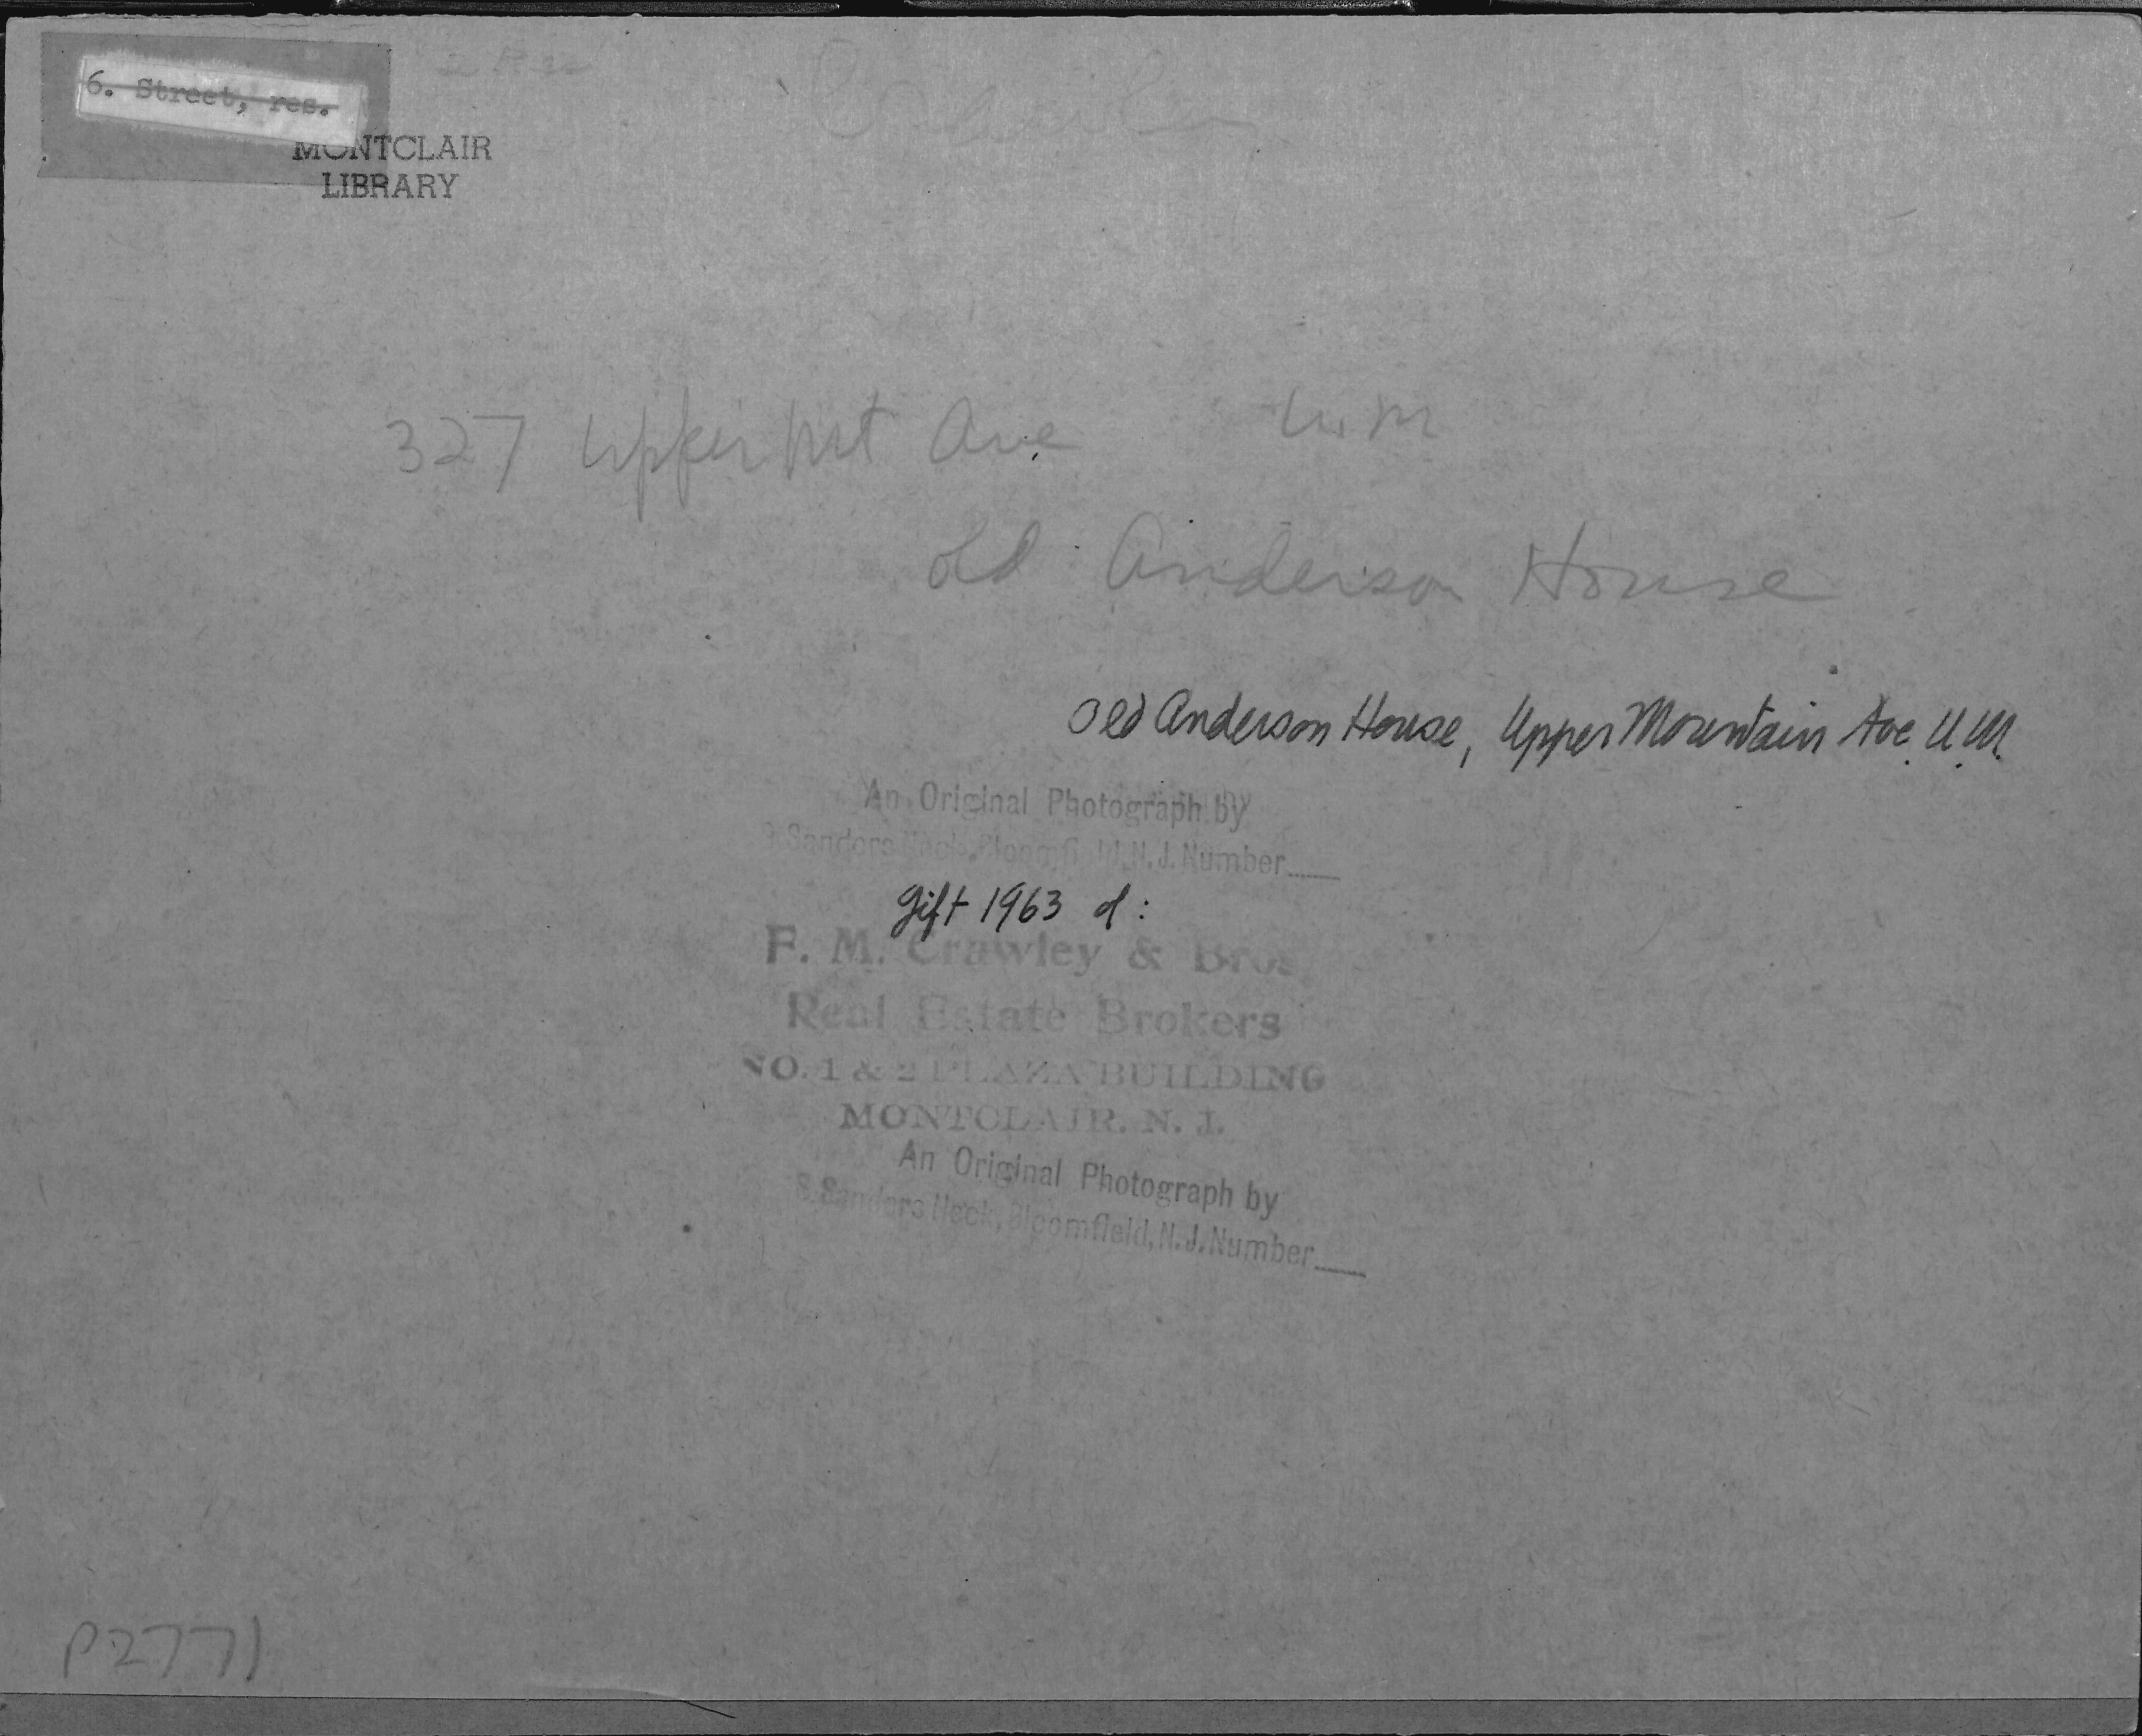 6. Street, res.
MONTCLAIR
LIBRARY
327 Upper Mt Ave U.M
Old Anderson House
Old Anderson House, Upper Mountain Ave. U.M.
An Original Photograph by
Sanders N.J. Number____
Gift 1963 of:
F. M. Crawley & Bros.
Real Estate Brokers
NO. 1 & 2 PLAZA BUILDING
MONTCLAIR. N. J.
An Original Photograph by
Sanders Bloomfield, N.J. Number____
P2771